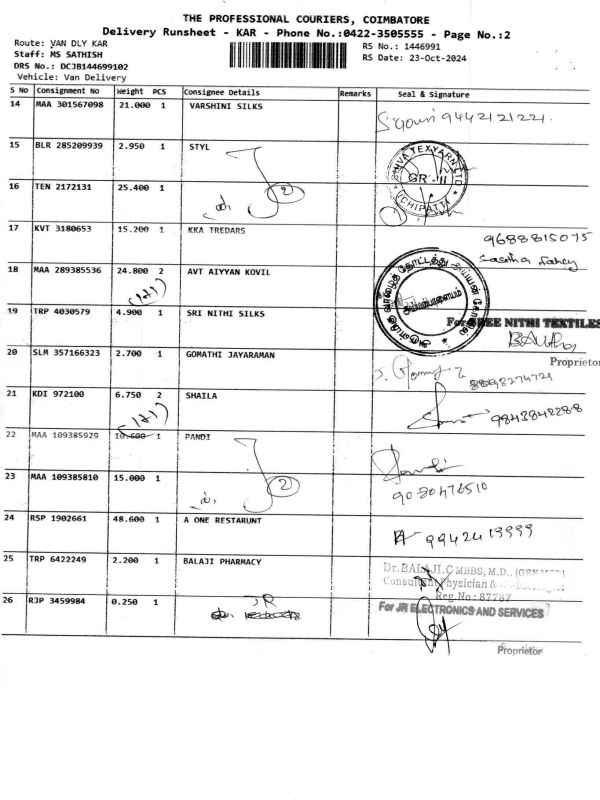 THE PROFESSIONAL COURIERS, COIMBATORE
Delivery Runsheet - KAR - Phone No.:0422-3505555 - Page No.:2
Route: VAN DLY KAR
Staff: MS SATHISH
DRS No.: DCJB144699102
Vehicle: Van Delivery
RS No.: 1446991
RS Date: 23-Oct-2024
S No Consignment No Weight PCS Consignee Details Remarks Seal & Signature
14 MAA 301567098 21.000 1 VARSHINI SILKS
9442121221.
15 BLR 285209939 2.950 1 STYL
SHIVA TEXYARN LTD
GR - II
16 TEN 2172131 25.400 1
2
17 KVT 3180653 15.200 1 KKA TREDARS
9688815075
18 MAA 289385536 24.800 2 AVT AIYYAN KOVIL
(1/1)
19 TRP 4030579 4.900 1 SRI NITHI SILKS
NITHI TEXTILES
Proprietor
20 SLM 357166323 2.700 1 GOMATHI JAYARAMAN
21 KDI 972100 6.750 2 SHAILA
(1/1)
9843842288
22 MAA 109385929 10.600 1 PANDI
2
23 MAA 109385810 15.000 1
9080476510
24 RSP 1902661 48.600 1 A ONE RESTARUNT
9942419999
25 TRP 6422249 2.200 1 BALAJI PHARMACY
Dr.BALAJI.C MBBS, M.D.,
Consultant Physician &
Reg.No: 87787
26 RJP 3459984 0.250 1 JR
For JR ELECTRONICS AND SERVICES
Proprietor